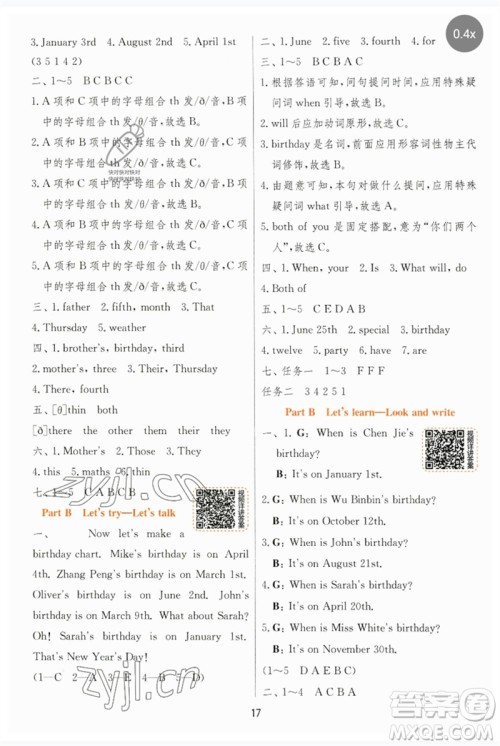 0.4x
3. January 3rd 4. August 5. April 1st
(3 5 1 4 2)
二、1～5 BCBCC
1. A 项和 C 项中的字母组合 th 发/ð/音,B 项
中的字母组合 th 发/θ/音,故选 B。
2. A 项和 C 项中的字母组合 th 发/θ/音,B 项
中的字母组合 th 发/ð/音,故选 C。
3. A 项和 C 项中的字母组合 th 发/θ/音,B 项
中的字母组合 th 发/ð/音,故选 B。
4. A 项和 B 项中的字母组合 th 发/θ/音,C 项
中的字母组合 th 发/ð/音,故选 C。
5. A 项和 B 项中的字母组合 th 发/θ/音,C 项
中的字母组合 th 发/ð/音,故选 C。
三、1. father 2. fifth, month 3. That
4. Thursday 5. weather
四、1. brother's, birthday, third
2. mother's, three 3. birthday, Thursday
4. There, fourth
五、[θ]three birthday both thin
[ð]there then mother brother they
六、1. Mother's 2. Those 3. Thursday
4. this 5. maths 6. thin
七、1～5 CABCB
Part B Let's try—Let's talk
一、 Now let's make a
birthday chart. Mike's birthday is on April
4th. Zhang Peng's birthday is on April 1st.
Oliver's birthday is on June 2nd. John's
birthday is on March 9th. What about Sarah?
Oh! Sarah's birthday is on January 1st.
That's New Year's Day!
(1—C 2—A 3—E 4—B 5—D)
二、1. June 2. five 3. first 4. for
三、1～5 BCBAC
1. 根据答语可知,问句提问时间,应用特殊疑
问词 when 引导,故选 B。
2. will 后应加动词原形,故选 C。
3. birthday 是名词,前面应用形容词性物主代
词修饰,故选 B。
4. 由题意可知,本句对做什么提问,应用特殊
疑问词 what 引导,故选 A。
5. both of you 是固定搭配,意为“你们两个
人”,故选 C。
四、1. When, your 2. Is 3. What will, do
4. Both of
五、1～5 CEDAB
六、1. June 25th 2. special 3. birthday
4. twelve 5. party 6. have 7. are
七、任务一 1～3 FFF
任务二 3 4 2 5 1
Part B Let's learn—Look and write
一、1. G: When is Chen Jie's
birthday?
B: It's on January 1st.
2. G: When is Wu Binbin's birthday?
B: It's on October 12th.
3. G: When is John's birthday?
B: It's on August 21st.
4. G: When is Sarah's birthday?
B: It's on April 20th.
5. G: When is Miss White's birthday?
B: It's on November 30th.
(1～5 DAEBC)
二、1～4 ACBA
视频详讲答案
视频详讲答案
快对快对快对
zyjl.cn
zyjl.cn
17
答案圈
MXQE.COM